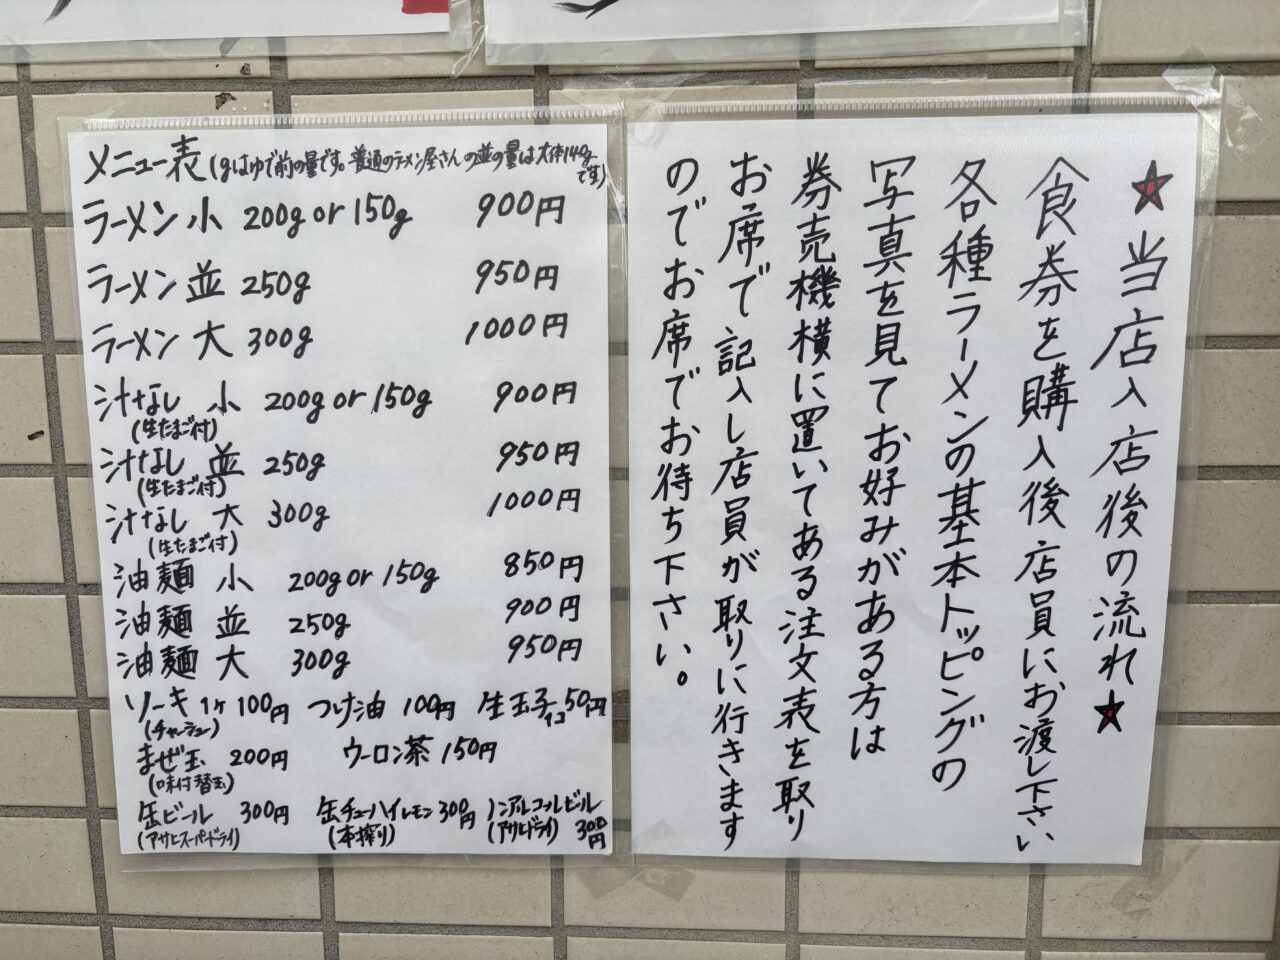 メニュー表(gはゆで前の量です。普通のラーメン屋さんの並の量は大体140gです)
ラーメン 小 200g or 150g 900円
ラーメン 並 250g 950円
ラーメン 大 300g 1000円
汁なし 小 200g or 150g 900円
(生たまご付)
汁なし 並 250g 950円
(生たまご付)
汁なし 大 300g 1000円
(生たまご付)
油麺 小 200g or 150g 850円
油麺 並 250g 900円
油麺 大 300g 950円
ソーキ 1ヶ 100円 つけ油 100円 生玉子 1コ 50円
(チャーシュー)
まぜ玉 200円 ウーロン茶 150円
(味付替玉)
缶ビール 300円 缶チューハイレモン 300円 ノンアルコールビール
(アサヒスーパードライ) (本搾り) (アサヒドライ) 300円
★当店入店後の流れ★
食券を購入後店員にお渡し下さい
各種ラーメンの基本トッピングの
写真を見てお好みがある方は
券売機横に置いてある注文表を取り
お席で記入し店員が取りに行きます
のでお席でお待ち下さい。